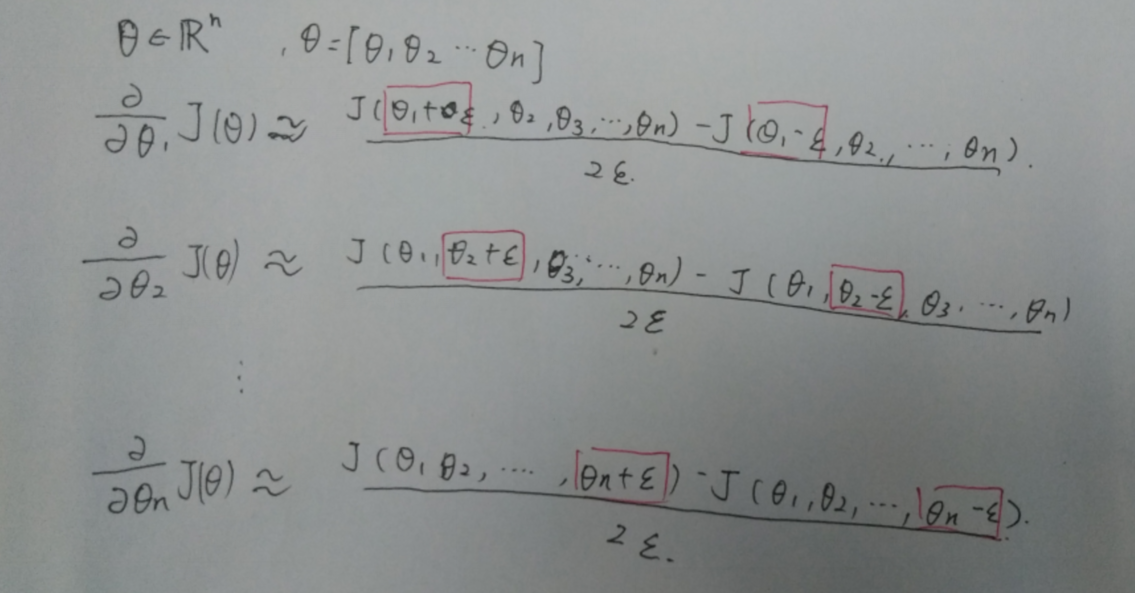 θ ∈ ℝⁿ , θ = [θ₁ θ₂ ⋯ θn]
∂/∂θ₁ J(θ) ≈ J(θ₁+ε, θ₂, θ₃, ⋯, θn) − J(θ₁−ε, θ₂, ⋯, θn). / 2ε.
∂/∂θ₂ J(θ) ≈ J(θ₁, θ₂+ε, θ₃, ⋯, θn) − J(θ₁, θ₂−ε, θ₃, ⋯, θn) / 2ε
⋮
∂/∂θn J(θ) ≈ J(θ₁ θ₂, ⋯, θn+ε) − J(θ₁, θ₂, ⋯, θn−ε). / 2ε.